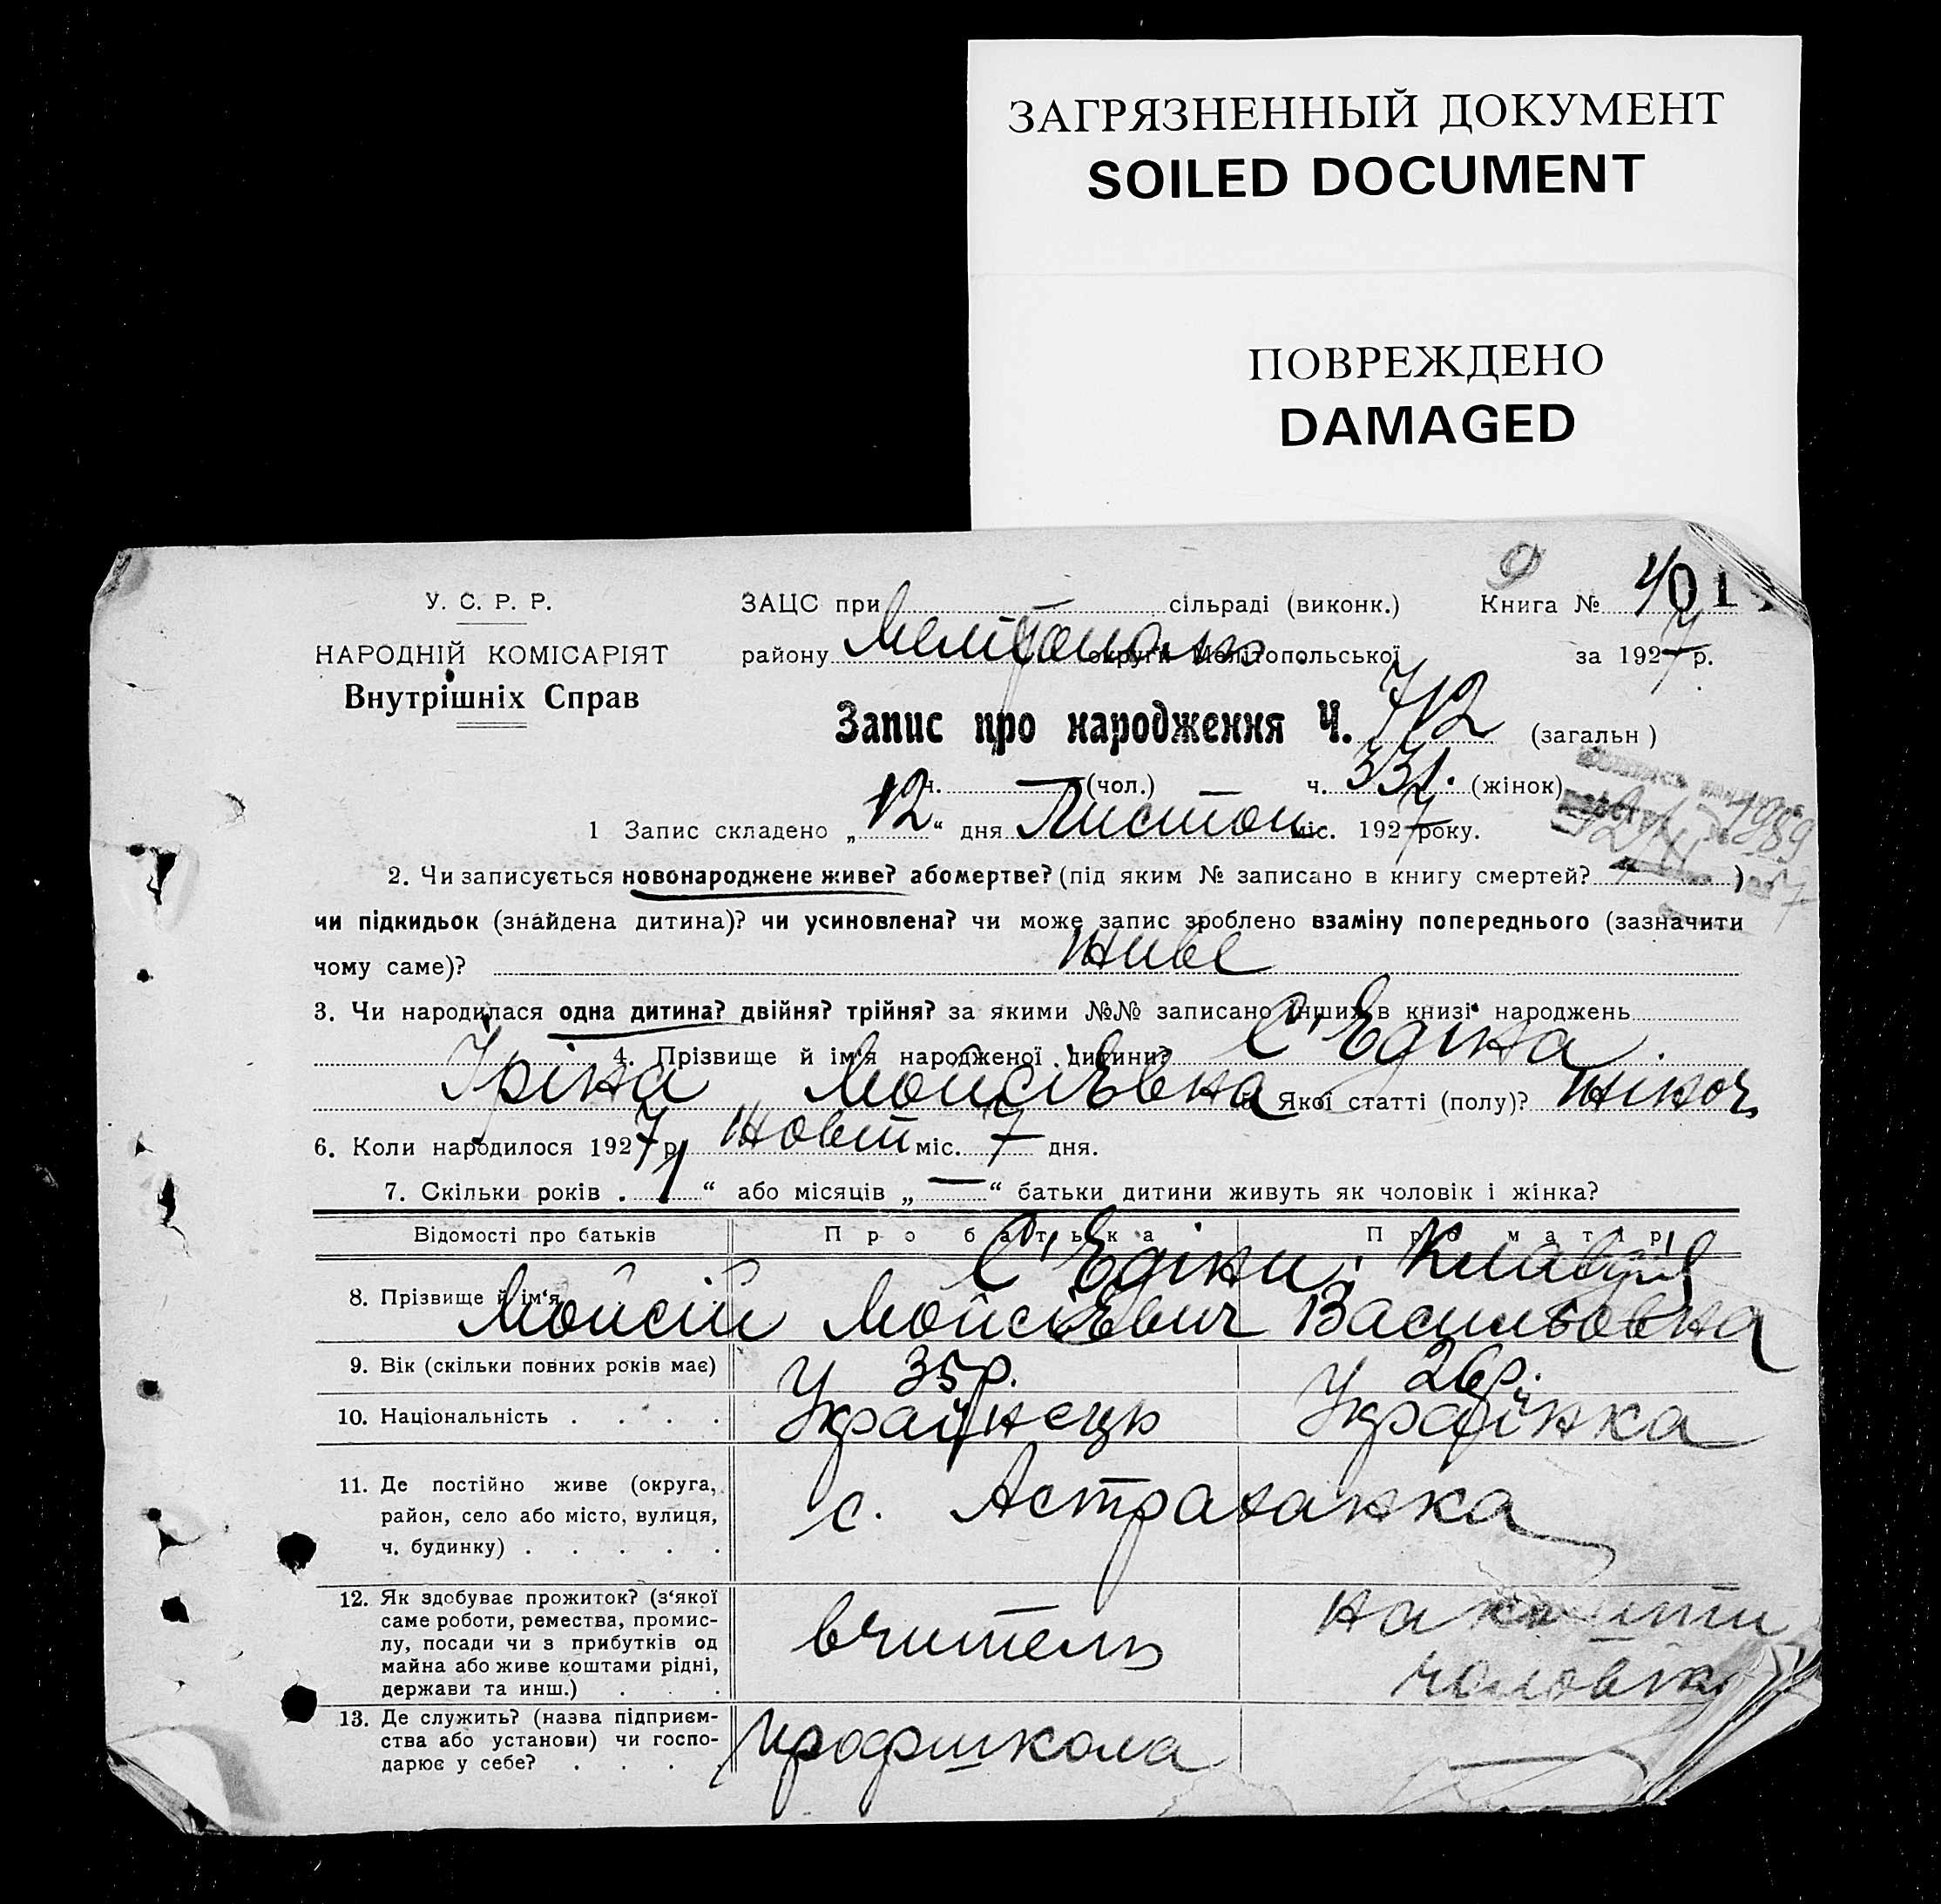 ЗАГРЯЗНЕННЫЙ ДОКУМЕНТ
SOILED DOCUMENT
ПОВРЕЖДЕНО
DAMAGED
У. С. Р. Р.
НАРОДНІЙ КОМІСАРІЯТ
Внутрішніх Справ
9
ЗАЦС при сільраді (виконк.) Книга № 4 01
району округи Мелітопольської за 1927 р.
Запис про народження Ч. 712 (загальн)
ч. — (чол.) ч. 331. (жінок)
1 Запис складено „12“ дня Листоп міс. 1927 року.
2. Чи записується новонароджене живе? або мертве? (під яким № записано в книгу смертей? )
чи підкидьок (знайдена дитина)? чи усиновлена? чи може запис зроблено взаміну попереднього (зазначити
чому саме)? живе
3. Чи народилася одна дитина? двійня? трійня? за якими №№ записано інших в книзі народжень
4. Прізвище й ім'я народженої дитини? С'Едіна.
Іріна Мойсіевна Якої статті (полу)? жіноч.
6. Коли народилося 1927 р. Жовт міс. 7 дня.
7. Скільки років . 1 “ або місяців „ — “ батьки дитини живуть як чоловік і жінка?
Відомості про батьків Про батька Про матір
С'Едіни
8. Прізвище й ім'я Мойсій Мойсієвич Васильовна
9. Вік (скільки повних років має) 35р. 26р.
10. Національність . . . . Українець Українка
11. Де постійно живе (округа,
район, село або місто, вулиця,
ч. будинку) . . . . .
с. Астраханка
12. Як здобуває прожиток? (з'якої
саме роботи, ремества, промис-
лу, посади чи з прибутків од
майна або живе коштами рідні,
держави та инш.) . . .
вчитель
на кошти
чоловіка
13. Де служить? (назва підприєм-
ства або установи) чи госпо-
дарює у себе? . . . .
профшкола